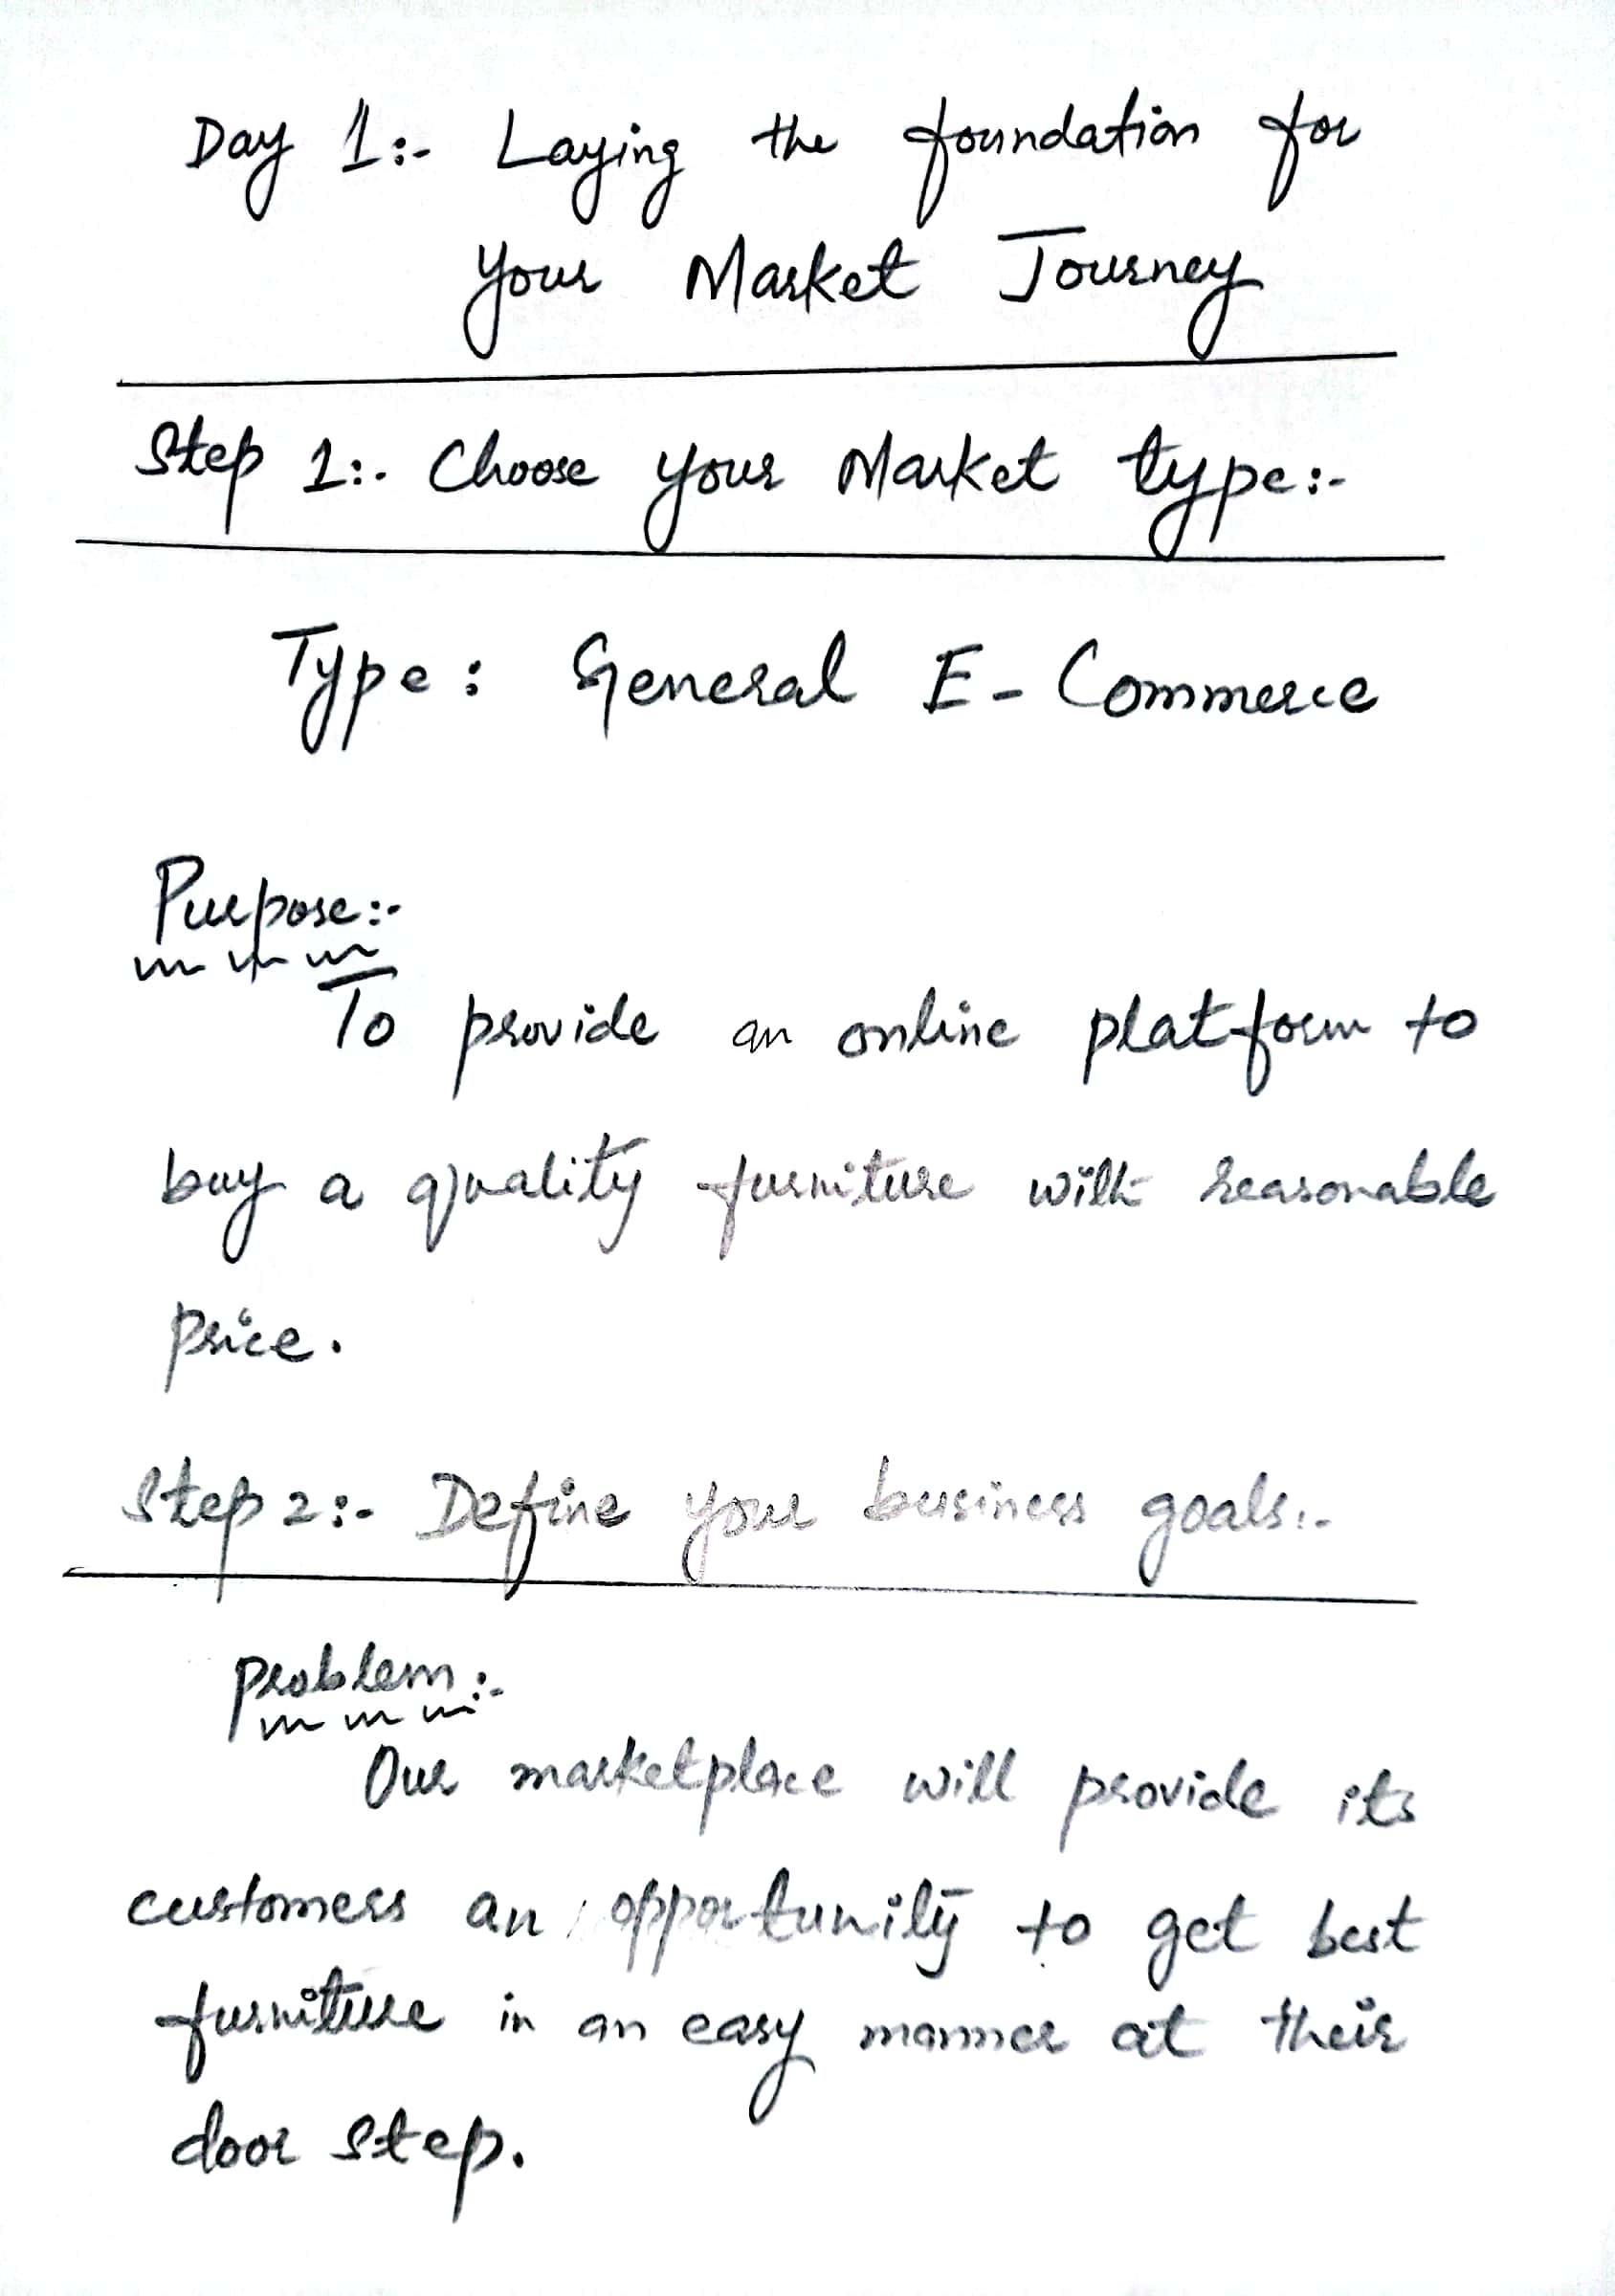 Day 1:- Laying the foundation for
your Market Journey
Step 1:- Choose your Market type:-
Type: General E-Commerce
Purpose:-
To provide an online platform to
buy a quality furniture with reasonable
price.
Step 2:- Define your business goals:-
Problem:-
Our marketplace will provide its
customers an opportunity to get best
furniture in an easy manner at their
door step.